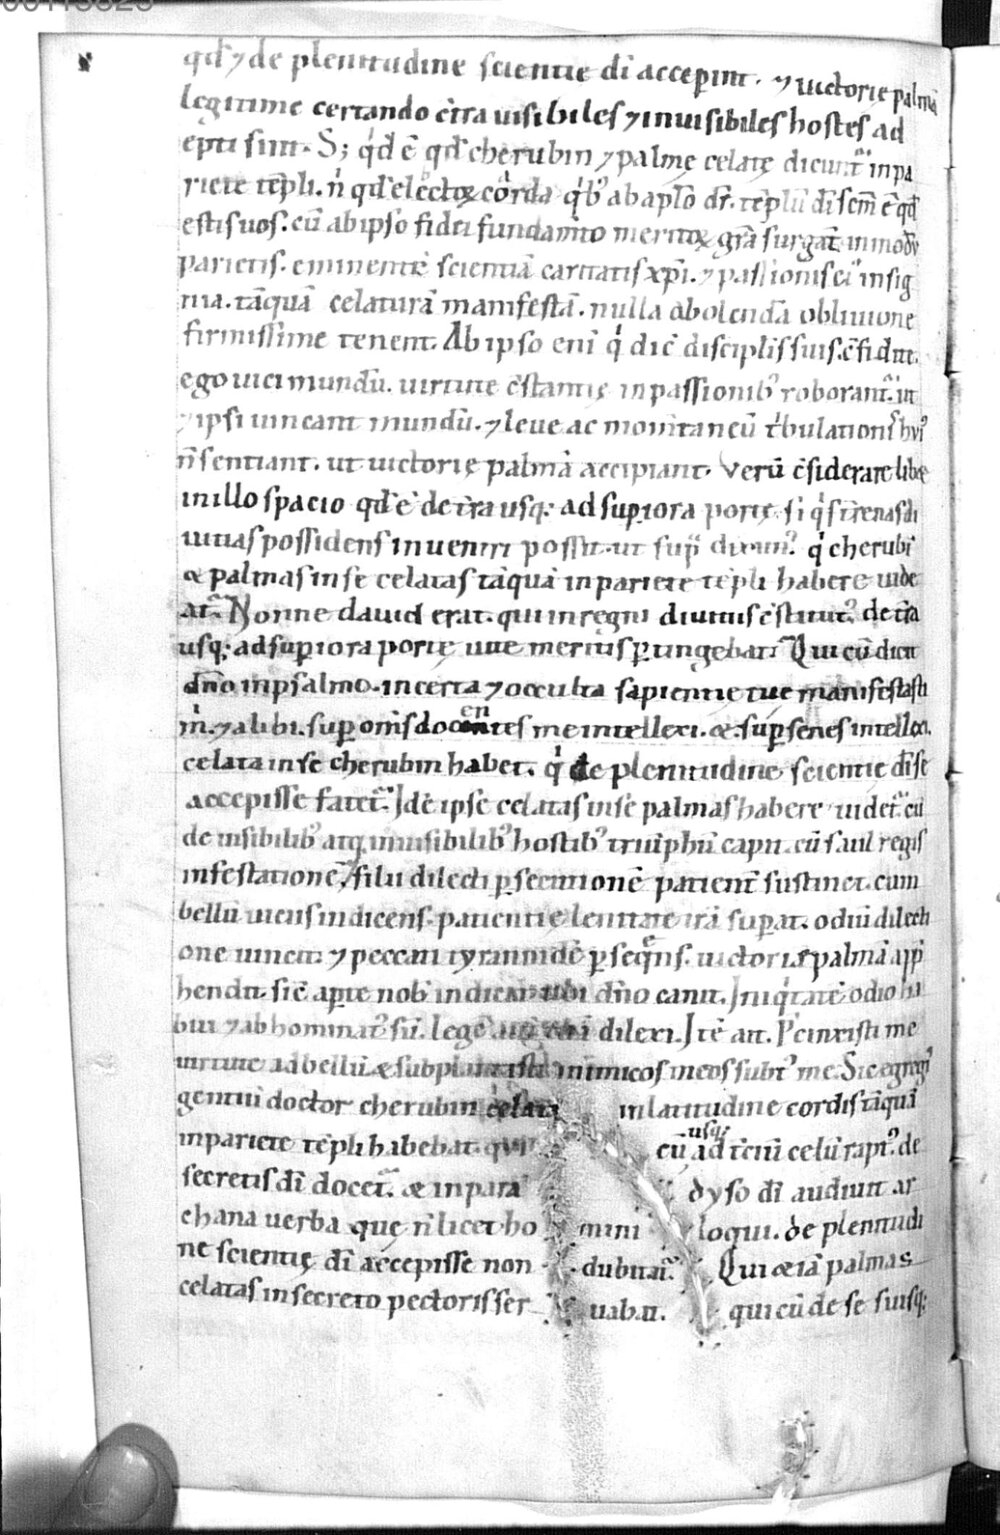 qđ ⁊ de plenitudine scientie dī acceperint. ⁊ uictorię palmā
legitime certando c̄tra uisibiles ⁊ inuisibiles hostes ad
epti sint. S; qͥd ē qđ cherubin ⁊ palmę celatę dicunt᷑ in pa
riete tēpli. n̄ qđ electoꝝ corda qͥbꝰ ab apľo dr̄. tēplū dī scm̄ ē qđ
estis uos. cū ab ipso fidei fundamto meritoꝝ gr̄a surgat in modū
parietis. eminentē scientiā caritatis xp̄i. ⁊ passionis ei insig
nia. tāquā celaturā manifestā. nulla abolendā obliuione
firmissime tenent. Ab ipso eni qͥ dic̄ discipľis suis. c̄fidite.
ego uici mundū. uirtute c̄stantię in passionibꝰ roborant᷑. ut
⁊ ipsi uincant mundū. ⁊ leue ac momtaneū tͥbulationis huiꝰ
n̄ sentiant. ut uictorię palmā accipiant. Verū c̄siderare libet
in illo spacio qđ ē de tr̄a usq; ad superiora portę. si qͥs tr̄enas di
uitias possidens inueniri possit. ut sup̄ diximꝰ. qͥ cherubī
& palmas in se celatas tāquā in pariete tēpli habere uide
at᷑. Nonne dauid erat. qui in regni diuitiis c̄stitutꝰ. de tr̄a
usq; ad superiora portę uite meritis ꝑtingebat? Qui cū dicit
dn̄o in psalmo. incerta ⁊ occulta sapientię tue manifestasti
m̄. ⁊ alibi. sup om̄s docentes me intellexi. &. sup senes intellexi.
celata in se cherubin habet. qͥ de plenitudine scientie dī se
accepisse fatet᷑. Idē ipse celatas in se palmas habere uidet᷑. cū
de uisibilibꝰ atq; inuisibilibꝰ hostibꝰ triūphū capit. cū saul regis
infestationē, ⁊ filii dilecti ꝑsecutionē patient᷑ sustinet. cum
bellū uiciis indicens. patientię lenitate irā superat. odiū dilecti
one uincit. ⁊ peccati tyrannidē ꝑsequens. uictorię palmā app̄
hendit. sic̄ aperte nob̄ indicat ubi dn̄o canit. Iniqͥtatē odio ha
bui ⁊ abhominatꝰ sū. legē aut̄ tuā dilexi. Itē ait. Precinxisti me
uirtute ad bellū. & subplantasti inimicos meos subtꝰ me. Sic egregiꝰ
gentiū doctor cherubin celata in latitudine cordis tāquā
in pariete tēpli habebat. qui cū usq; ad tciū celū raptꝰ. de
secretis dī docet᷑. & in paradyso dī audiuit ar
chana uerba que n̄ licet homini loqui. de plenitudi
ne scientię dī accepisse non dubitat᷑. Qui & iā palmas
celatas in secreto pectoris seruabat. qui cū de se suisq;